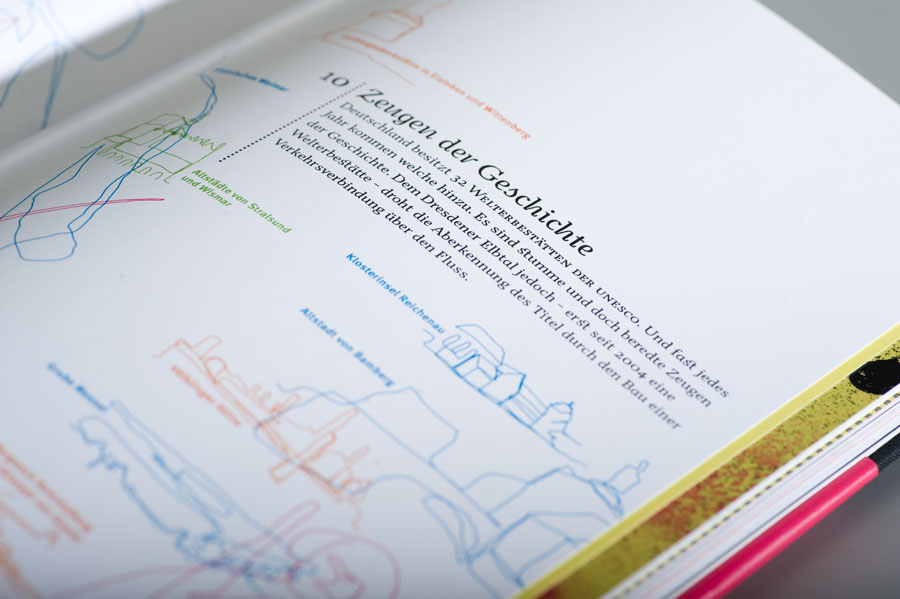 Luthergedenkstätte in Eisleben und Wittenberg
Klassisches Weimar
10 Zeugen der Geschichte
Deutschland besitzt 32 WELTERBESTÄTTEN DER UNESCO. Und fast jedes
Jahr kommen welche hinzu. Es sind stumme und doch beredte Zeugen
der Geschichte. Dem Dresdener Elbtal jedoch – erst seit 2004 eine
Welterbestätte – droht die Aberkennung des Titel durch den Bau einer
Verkehrsverbindung über den Fluss.
Altstädte von Stralsund
und Wismar
Klosterinsel Reichenau
Altstadt von Bamberg
Völklinger Hütte
Grube Messel